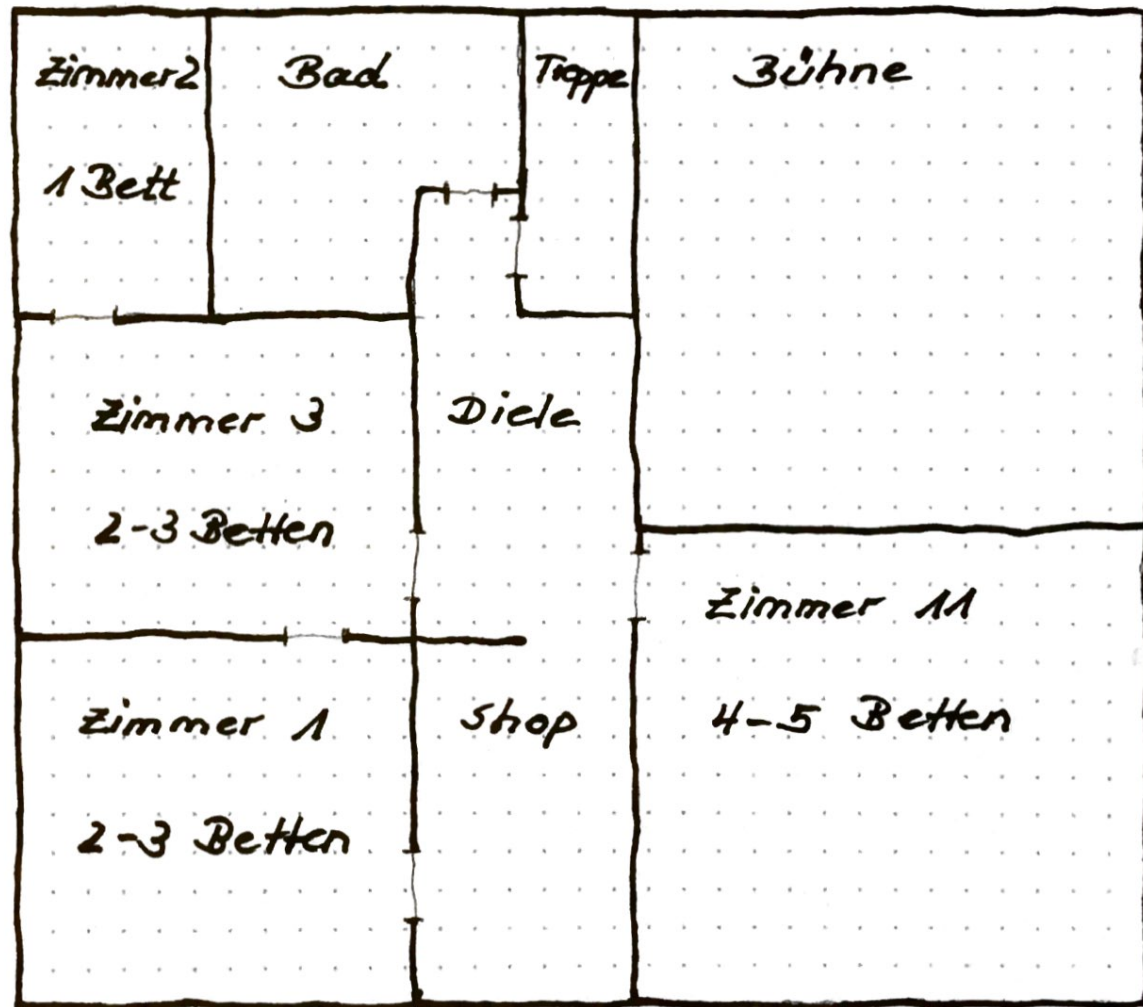 Zimmer 2
1 Bett
Bad
Treppe
Bühne
Zimmer 3
2-3 Betten
Diele
Zimmer 11
4-5 Betten
Zimmer 1
2-3 Betten
Shop